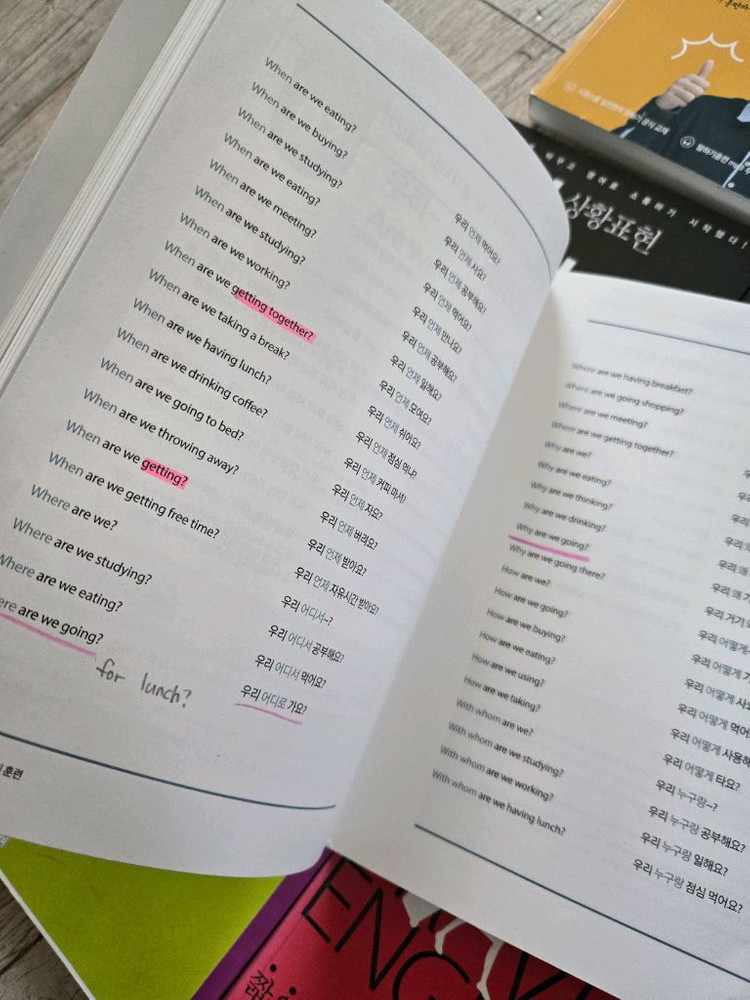 When are we eating? 우리 언제 먹어요?
When are we buying? 우리 언제 사요?
When are we studying? 우리 언제 공부해요?
When are we eating? 우리 언제 먹어요?
When are we meeting? 우리 언제 만나요?
When are we studying? 우리 언제 공부해요?
When are we working? 우리 언제 일해요?
When are we getting together? 우리 언제 모여요?
When are we taking a break? 우리 언제 쉬어요?
When are we having lunch? 우리 언제 점심 먹냐?
When are we drinking coffee? 우리 언제 커피 마셔?
When are we going to bed? 우리 언제 자요?
When are we throwing away? 우리 언제 버려요?
When are we getting? 우리 언제 받아요?
When are we getting free time? 우리 언제 자유시간 받아요?
Where are we? 우리 어디서~?
Where are we studying? 우리 어디서 공부해요?
Where are we eating? 우리 어디서 먹어요?
ere are we going? 우리 어디로 가요?
for lunch?
훈련
Where are we having breakfast?
Where are we going shopping?
Where are we meeting?
Where are we getting together?
Why are we?
Why are we eating?
Why are we thinking?
Why are we drinking?
Why are we going?
Why are we going there? 우리 거기
How are we? 우리 어떻게~
How are we going? 우리 어떻게
How are we buying? 우리 어떻게 사
How are we eating? 우리 어떻게 먹어
How are we using? 우리 어떻게 사용해
How are we taking? 우리 어떻게 타요?
With whom are we? 우리 누구랑~?
With whom are we studying? 우리 누구랑 공부해요?
With whom are we working? 우리 누구랑 일해요?
With whom are we having lunch? 우리 누구랑 점심 먹어요?
상황표현
ENG